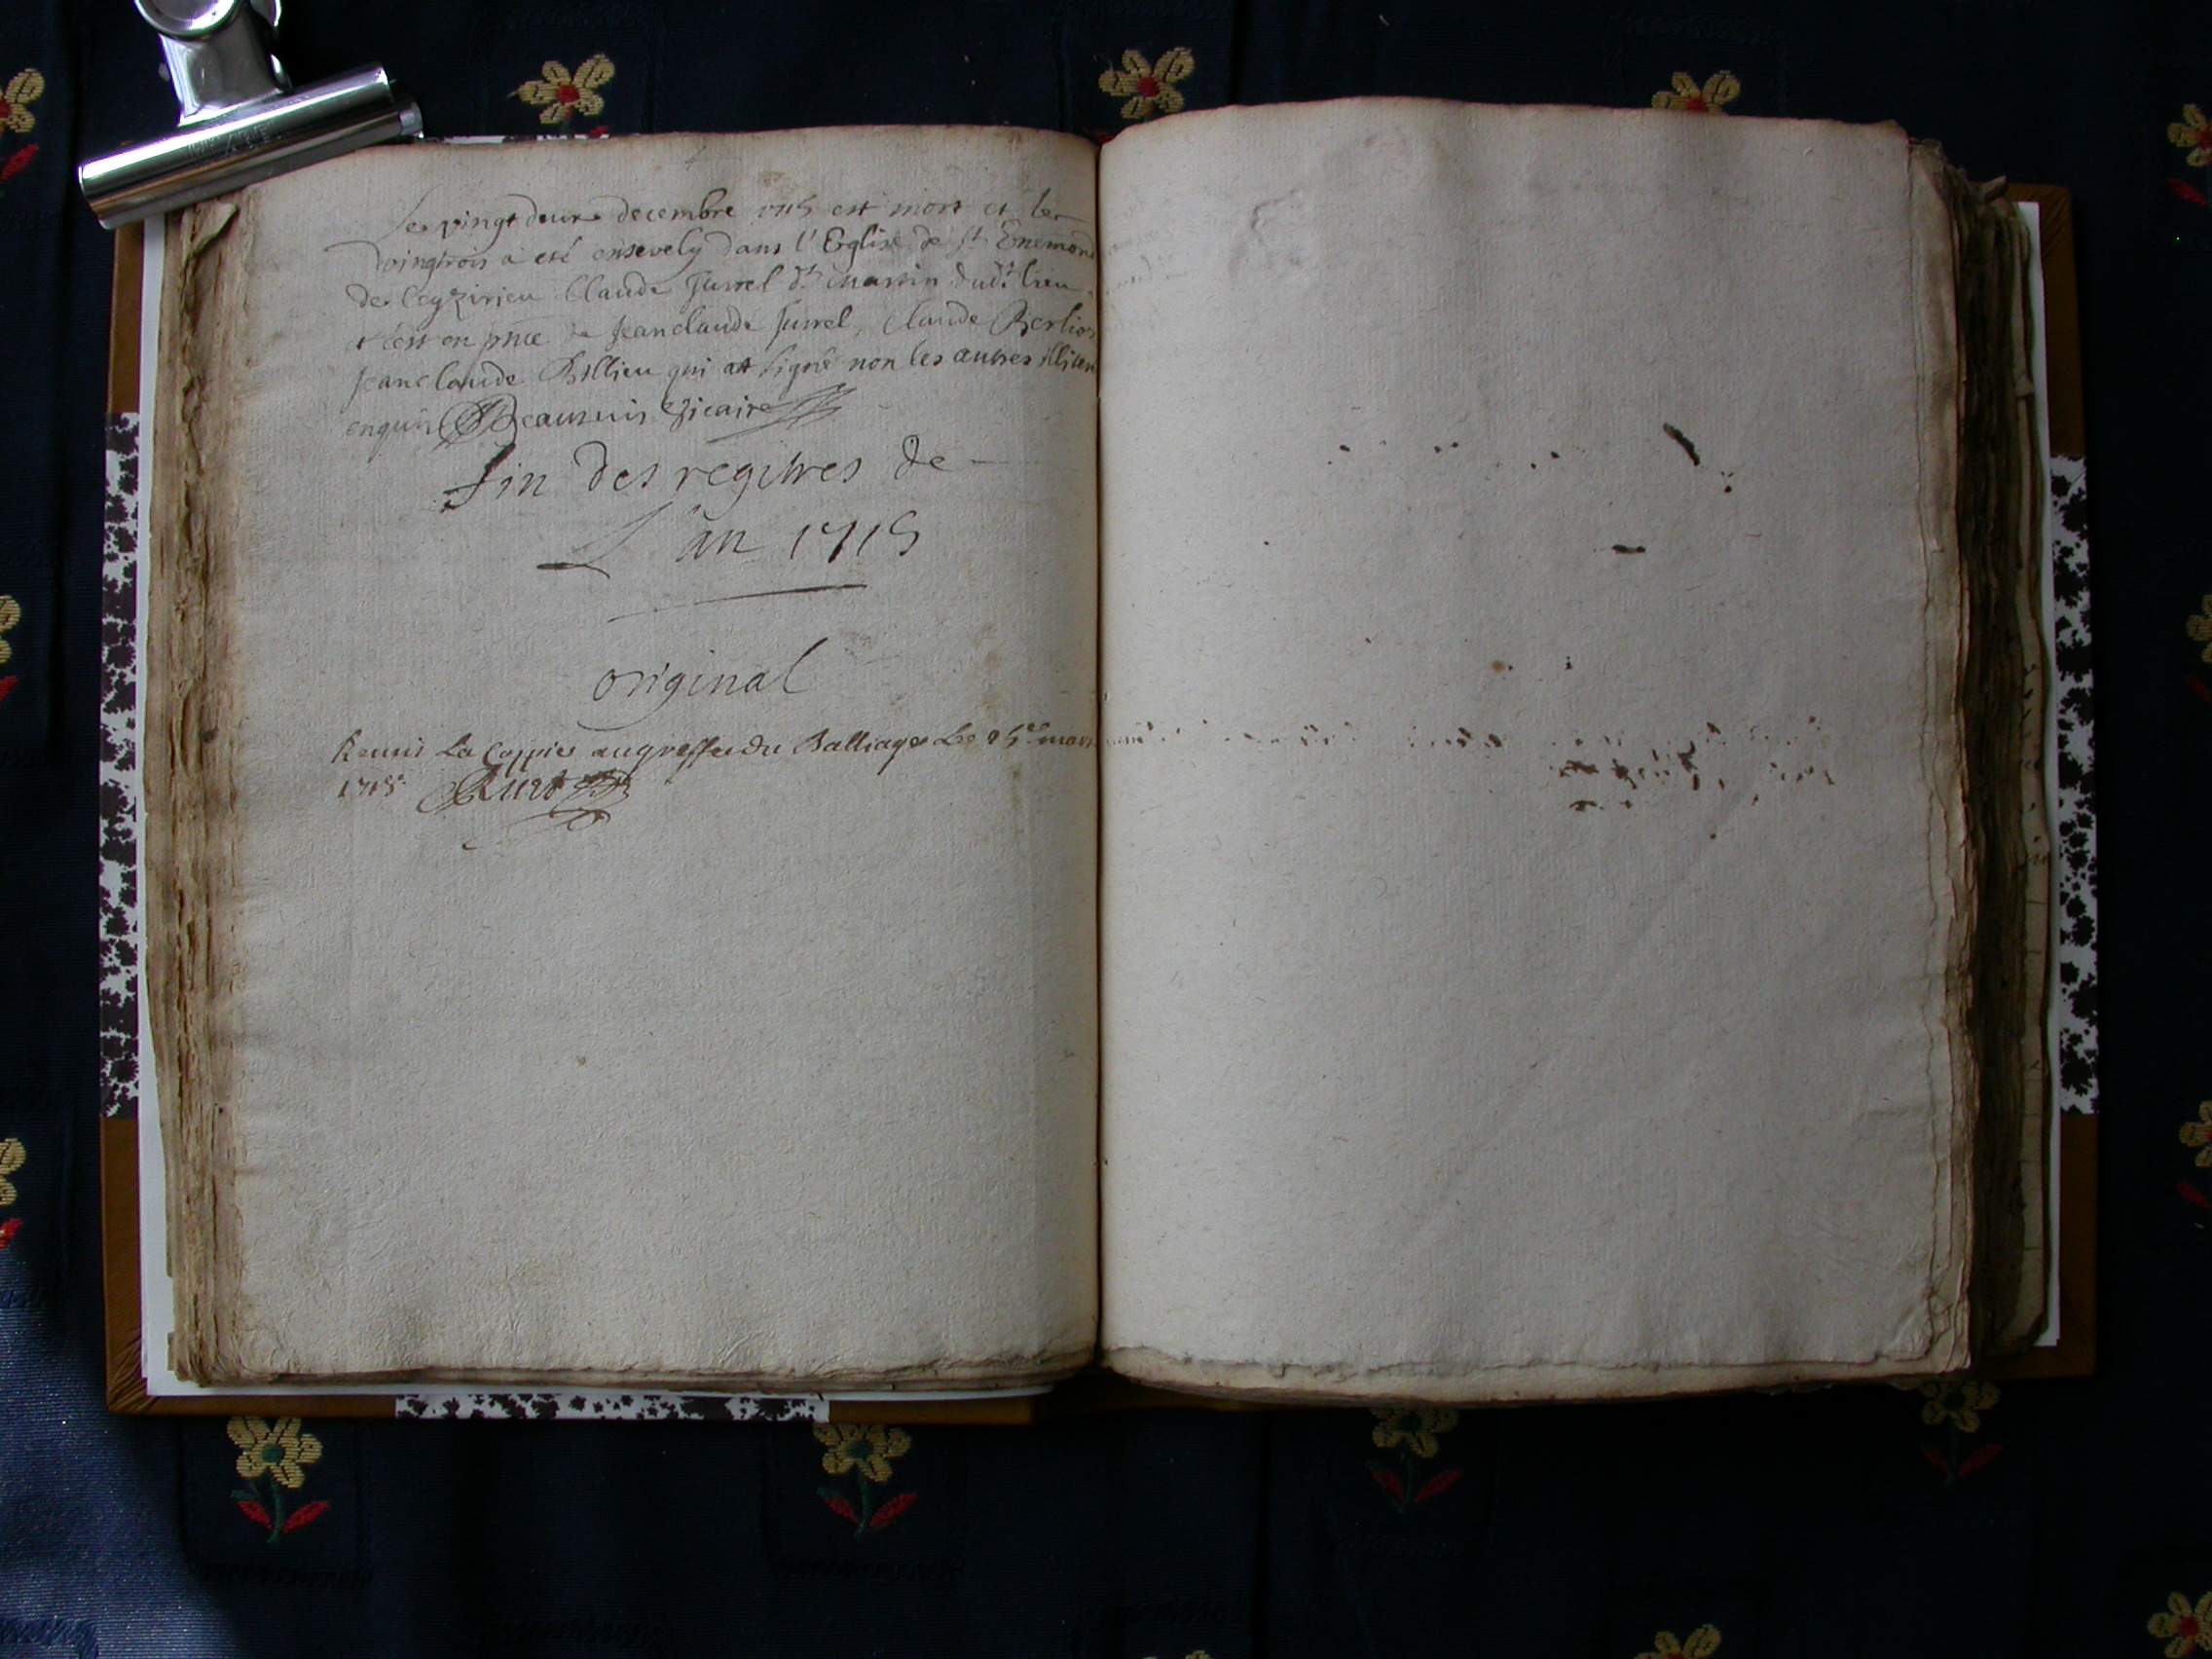 Le vingt deux decembre 1715 est mort et le
vingtrois a eté ensevely dans l'Eglise de St Enemond
de Leyzirieu Claude Jurrel dt Martin dudt lieu
et c'est en pnce de Jeanclaude Jurrel, Claude Berlion
Jeanclaude Billieu qui at signé non les autres illiteres
enquis Beaumis Vicaire
fin des regitres de
L'an 1715
original
Remis la Coppie au greffe du Balliage Le 25e mars
1715